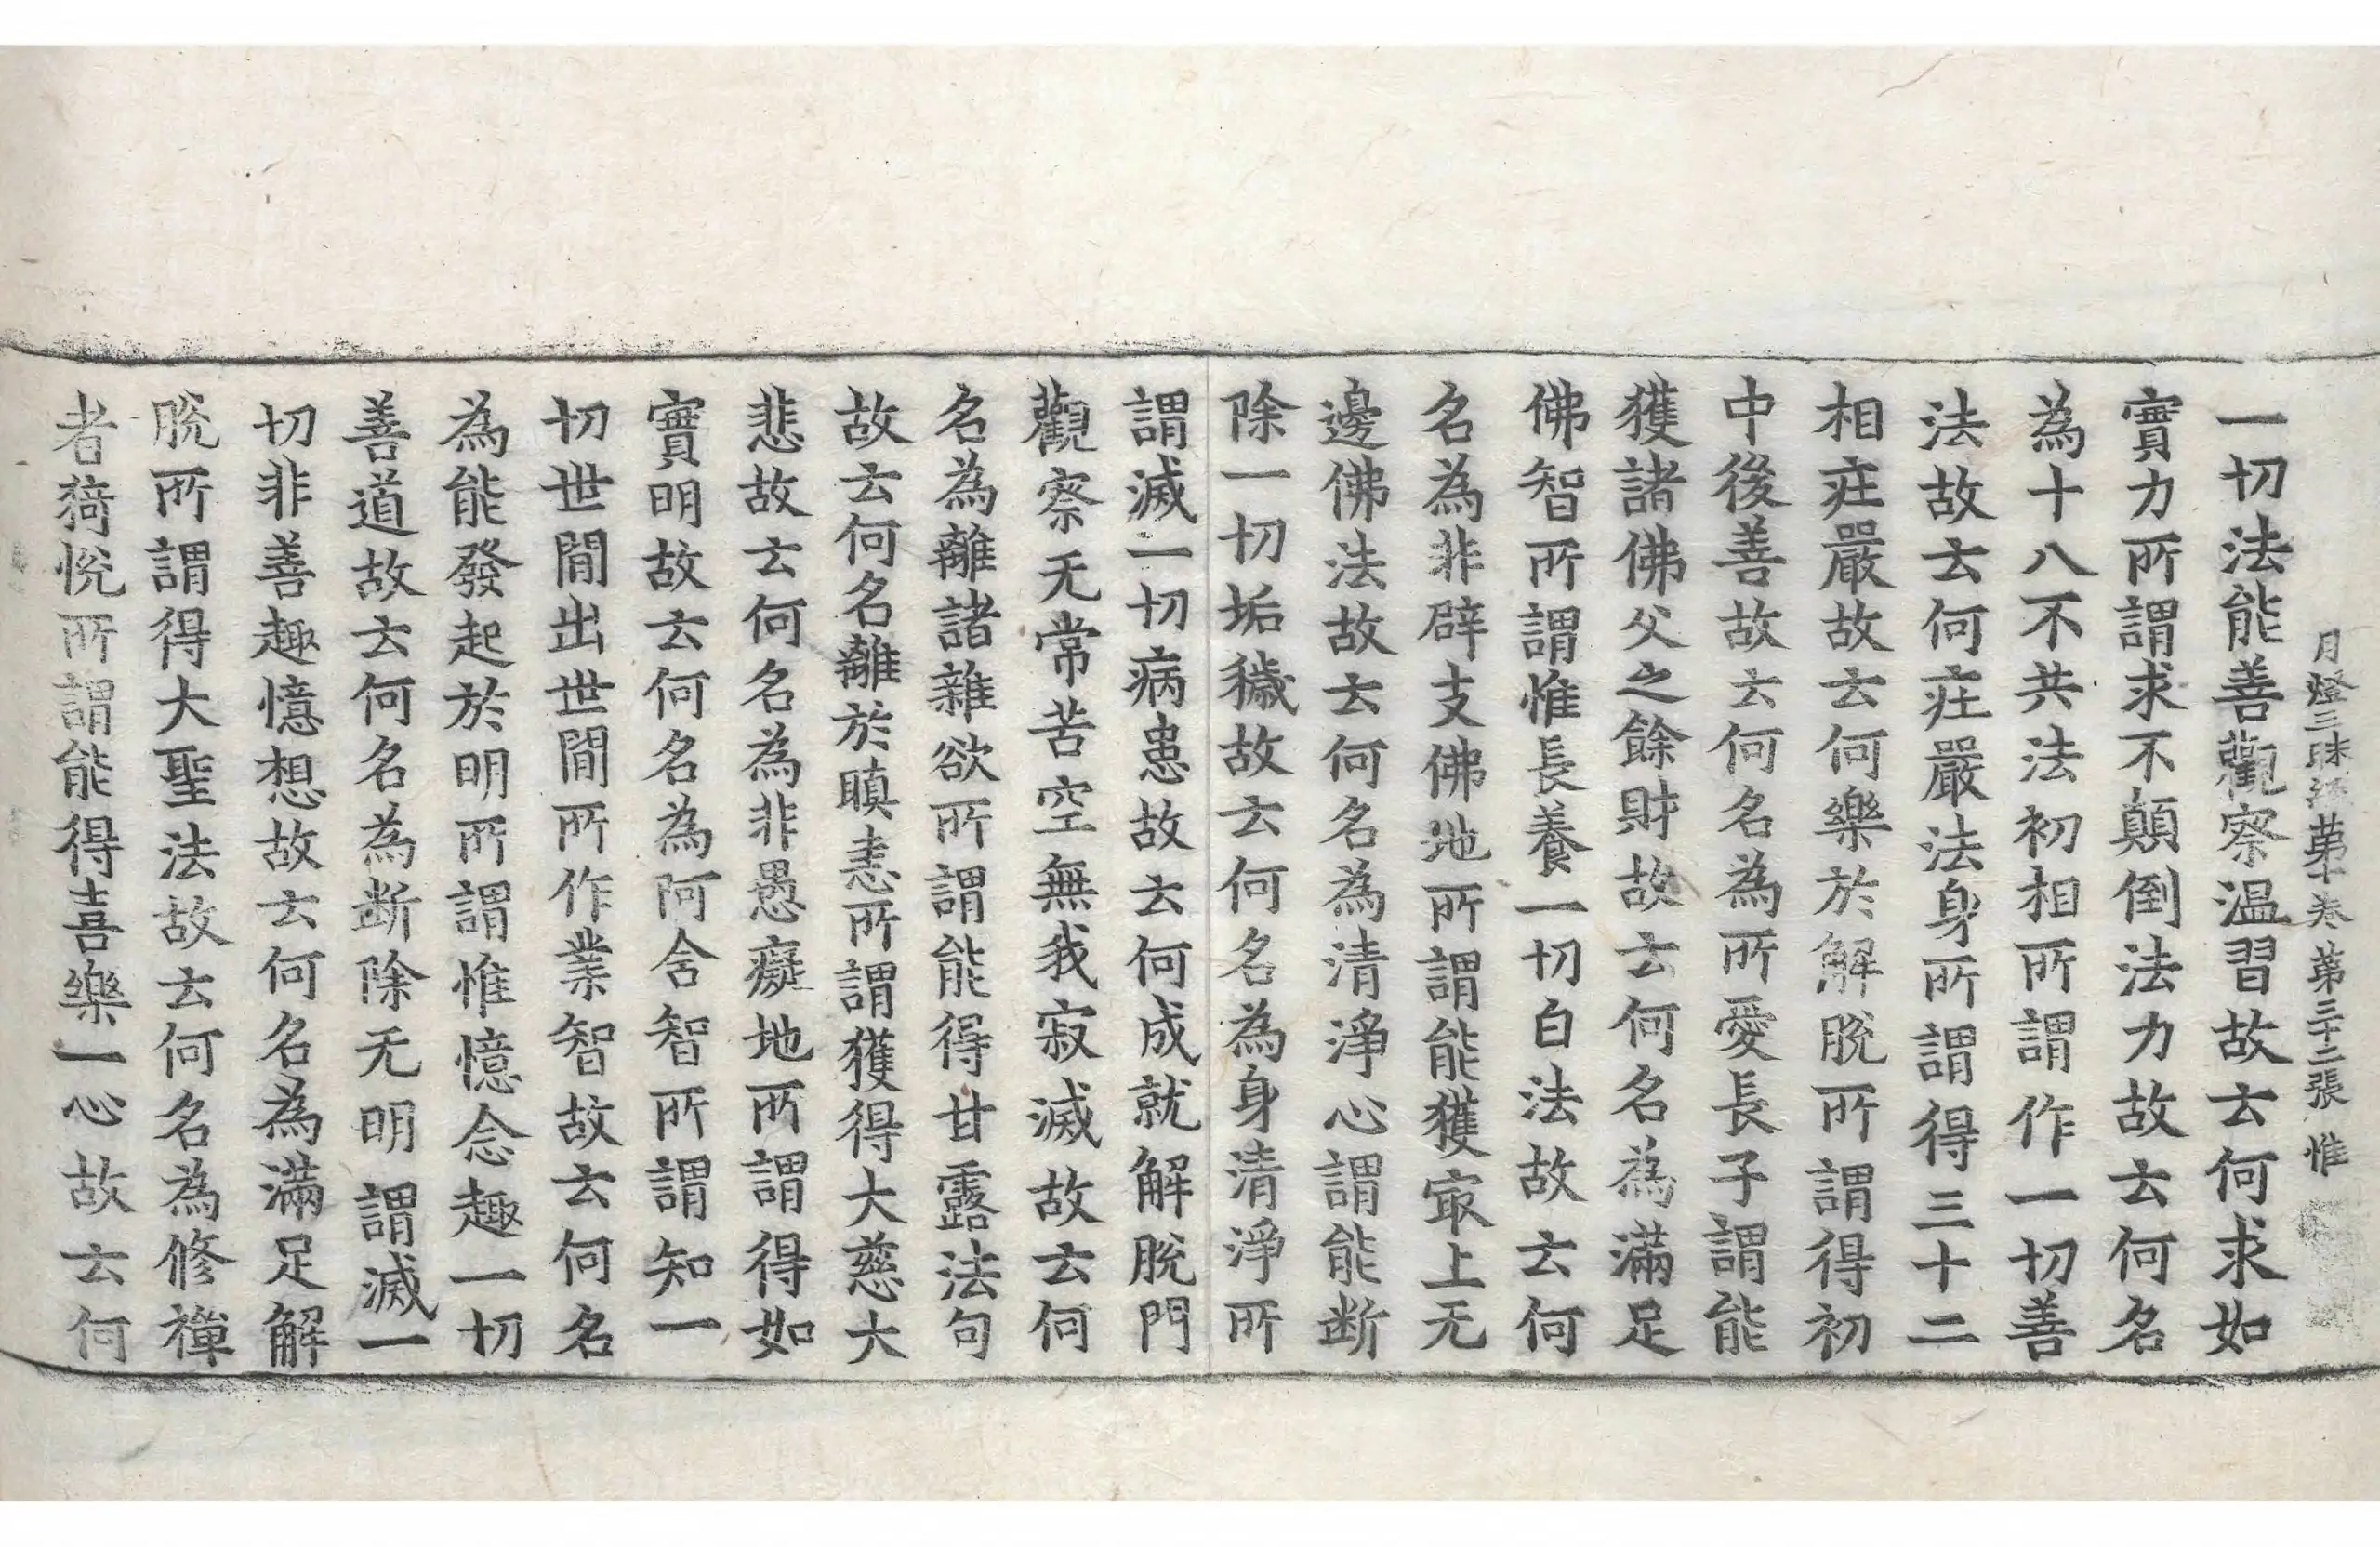 月燈三昧經第十卷 第三十二張 惟
一切法能善觀察温習故云何求如
實力所謂求不顛倒法力故云何名
為十八不共法初相所謂作一切善
法故云何莊嚴法身所謂得三十二
相莊嚴故云何樂於解脫所謂得初
中後善故云何名為所愛長子謂能
獲諸佛父之餘財故云何名為滿足
佛智所謂惟長養一切白法故云何
名為非辟支佛地所謂能獲冣上无
邊佛法故云何名為清淨心謂能断
除一切垢穢故云何名為身清淨所
謂滅一切病患故云何成就解脫門
觀察无常苦空無我寂滅故云何
名為離諸雜欲所謂能得甘露法句
故云何名離於瞋恚所謂獲得大慈大
悲故云何名為非愚癡地所謂得如
實明故云何名為阿含智所謂知一
切世間出世間所作業智故云何名
為能發起於明所謂惟憶念趣一切
善道故云何名為断除无明謂滅一
切非善趣憶想故云何名為滿足解
脫所謂得大聖法故云何名為修禪
者猗悅所謂能得喜樂一心故云何